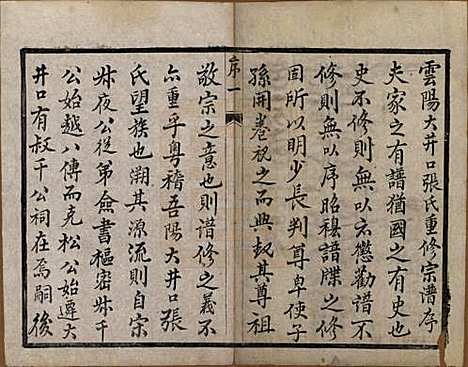 雲陽大井口張氏重修宗譜序
夫家之有譜猶國之有史也
史不修則無以示懲勸譜不
修則無以序昭穆譜牒之修
固所以明少長判尊卑使子
孫開卷視之而興起其尊祖
序一
敬宗之意也則譜修之義不
亦重乎粤稽吾陽大井口張
氏望族也溯其源流則自宋
叔夜公從弟僉書樞密叔千
公始越八傳而克松公始遷大
井口有叔千公祠在焉嗣後